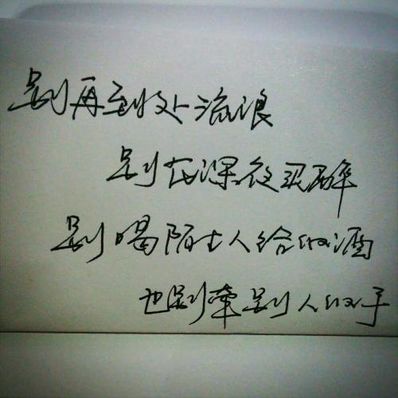 别再到处流浪
别在深夜买醉
别喝陌士人给的酒
也别牵别人的手